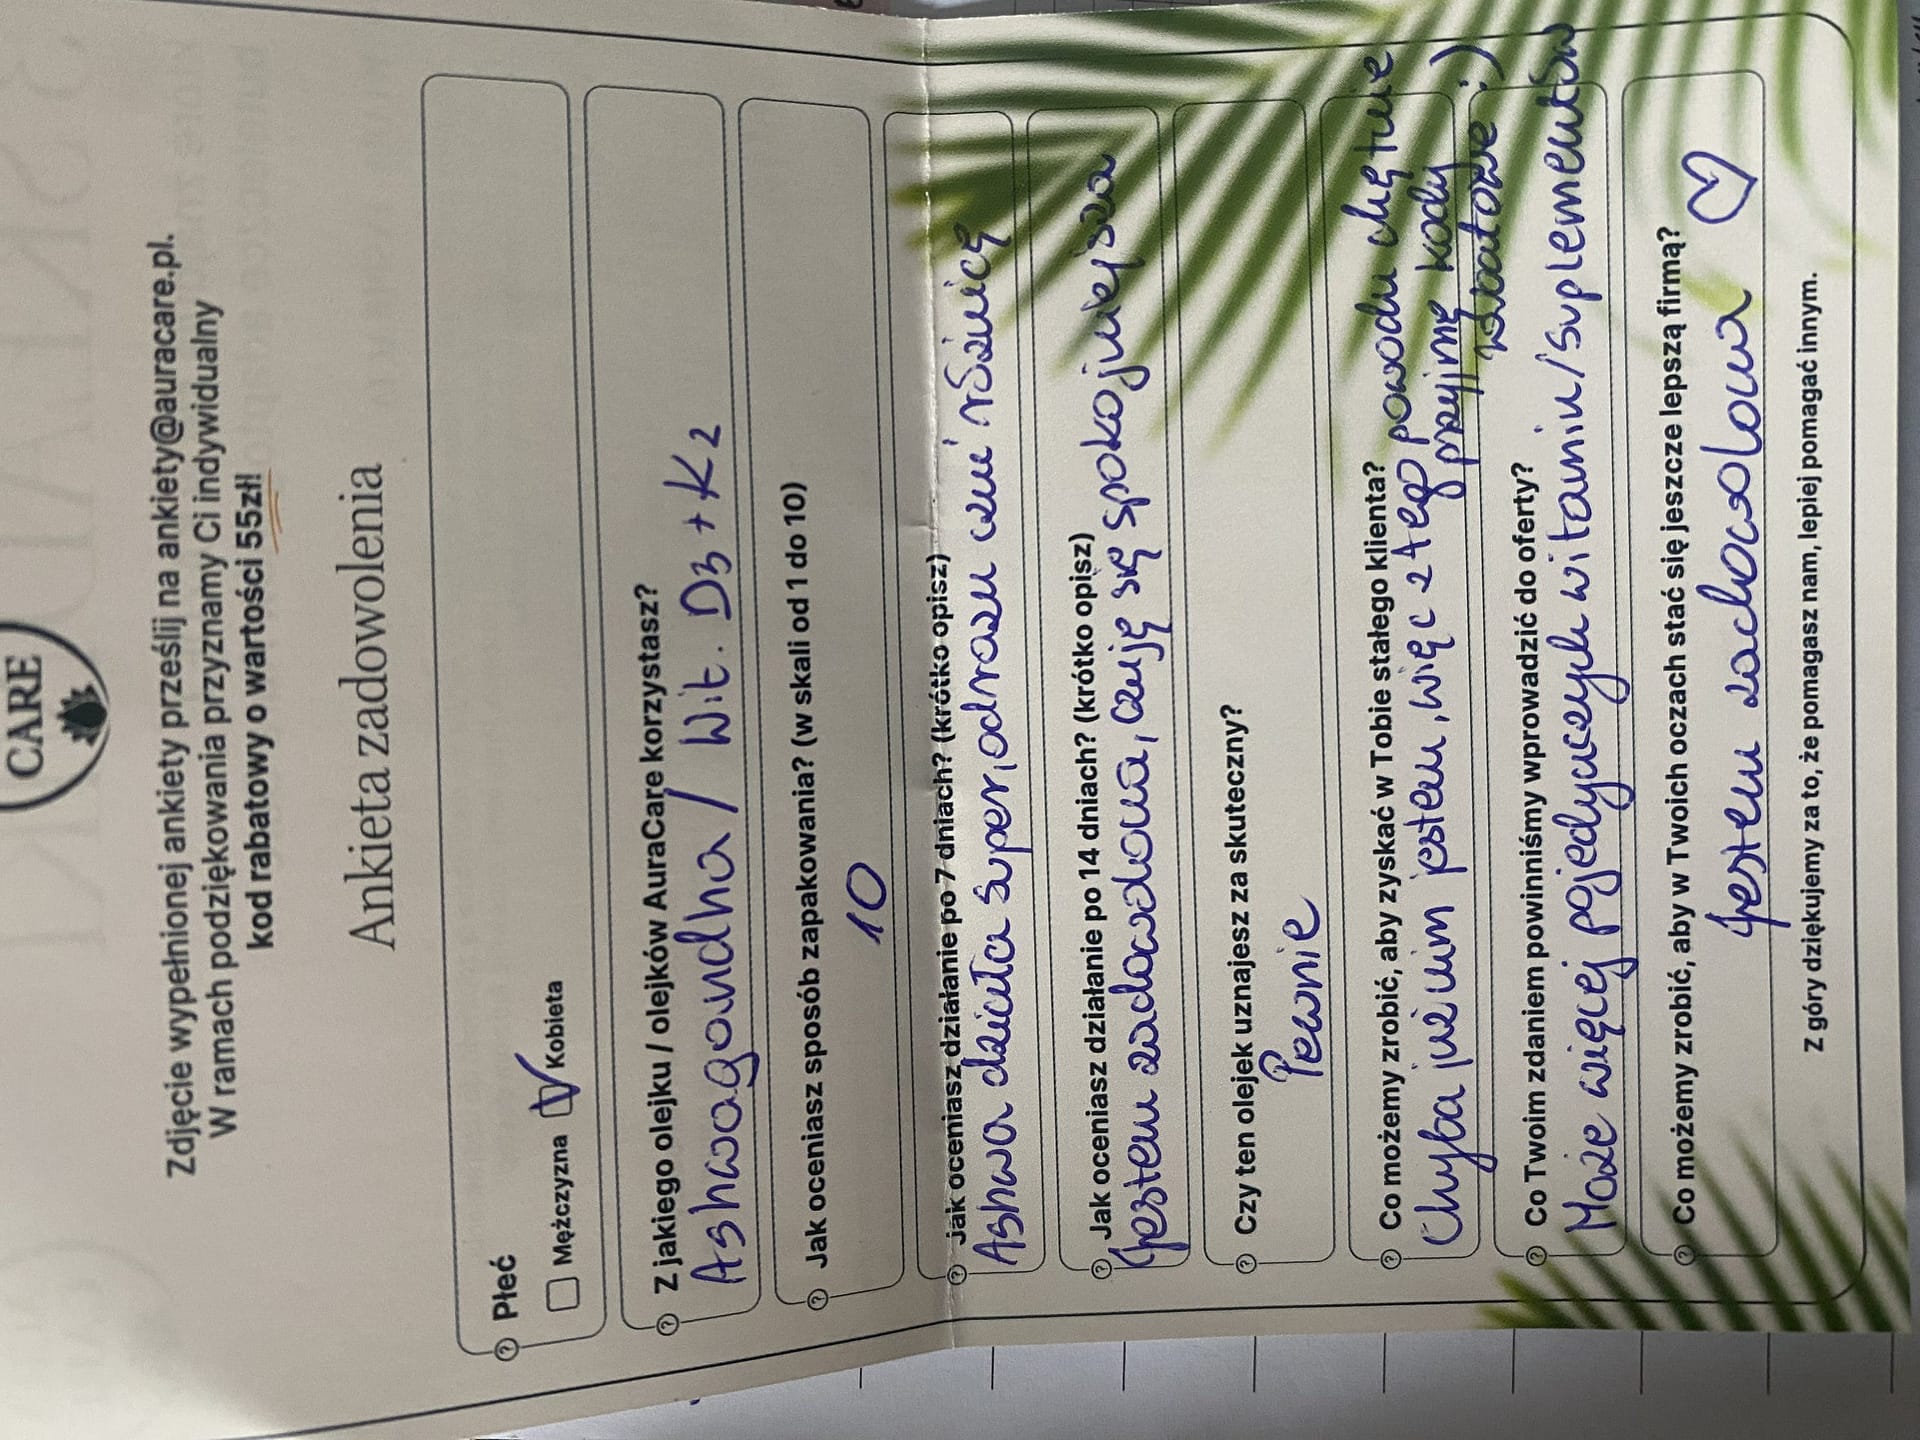 CARE
Zdjęcie wypełnionej ankiety prześlij na ankiety@auracare.pl.
W ramach podziękowania przyznamy Ci indywidualny
kod rabatowy o wartości 55zł!
Ankieta zadowolenia
Płeć
Mężczyzna V Kobieta
Z jakiego olejku / olejków AuraCare korzystasz?
Ashwagandha / Wit. D3 + K2
Jak oceniasz sposób zapakowania? (w skali od 1 do 10)
10
Jak oceniasz działanie po 7 dniach? (krótko opisz)
Ashwa działa super, odrazu czuć różnicę
Jak oceniasz działanie po 14 dniach? (krótko opisz)
Jestem zadowolona, czuję się spokojniejsza
Czy ten olejek uznajesz za skuteczny?
Pewnie
Co możemy zrobić, aby zyskać w Tobie stałego klienta?
Chyba już nim jestem, więc z tego powodu chętnie
przyjmę kody
rabatowe :)
Co Twoim zdaniem powinniśmy wprowadzić do oferty?
Może więcej pojedynczych witamin/suplementów
Co możemy zrobić, aby w Twoich oczach stać się jeszcze lepszą firmą?
Jestem zadowolona ♡
Z góry dziękujemy za to, że pomagasz nam, lepiej pomagać innym.